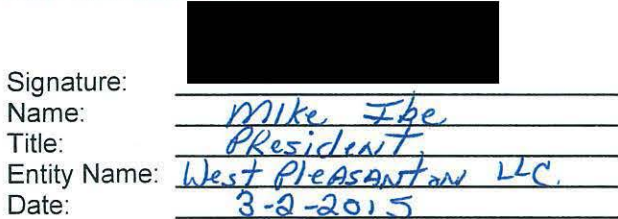 Signature:
Name: Mike Ibe
Title: President.
Entity Name: West Pleasanton LLC.
Date: 3-2-2015